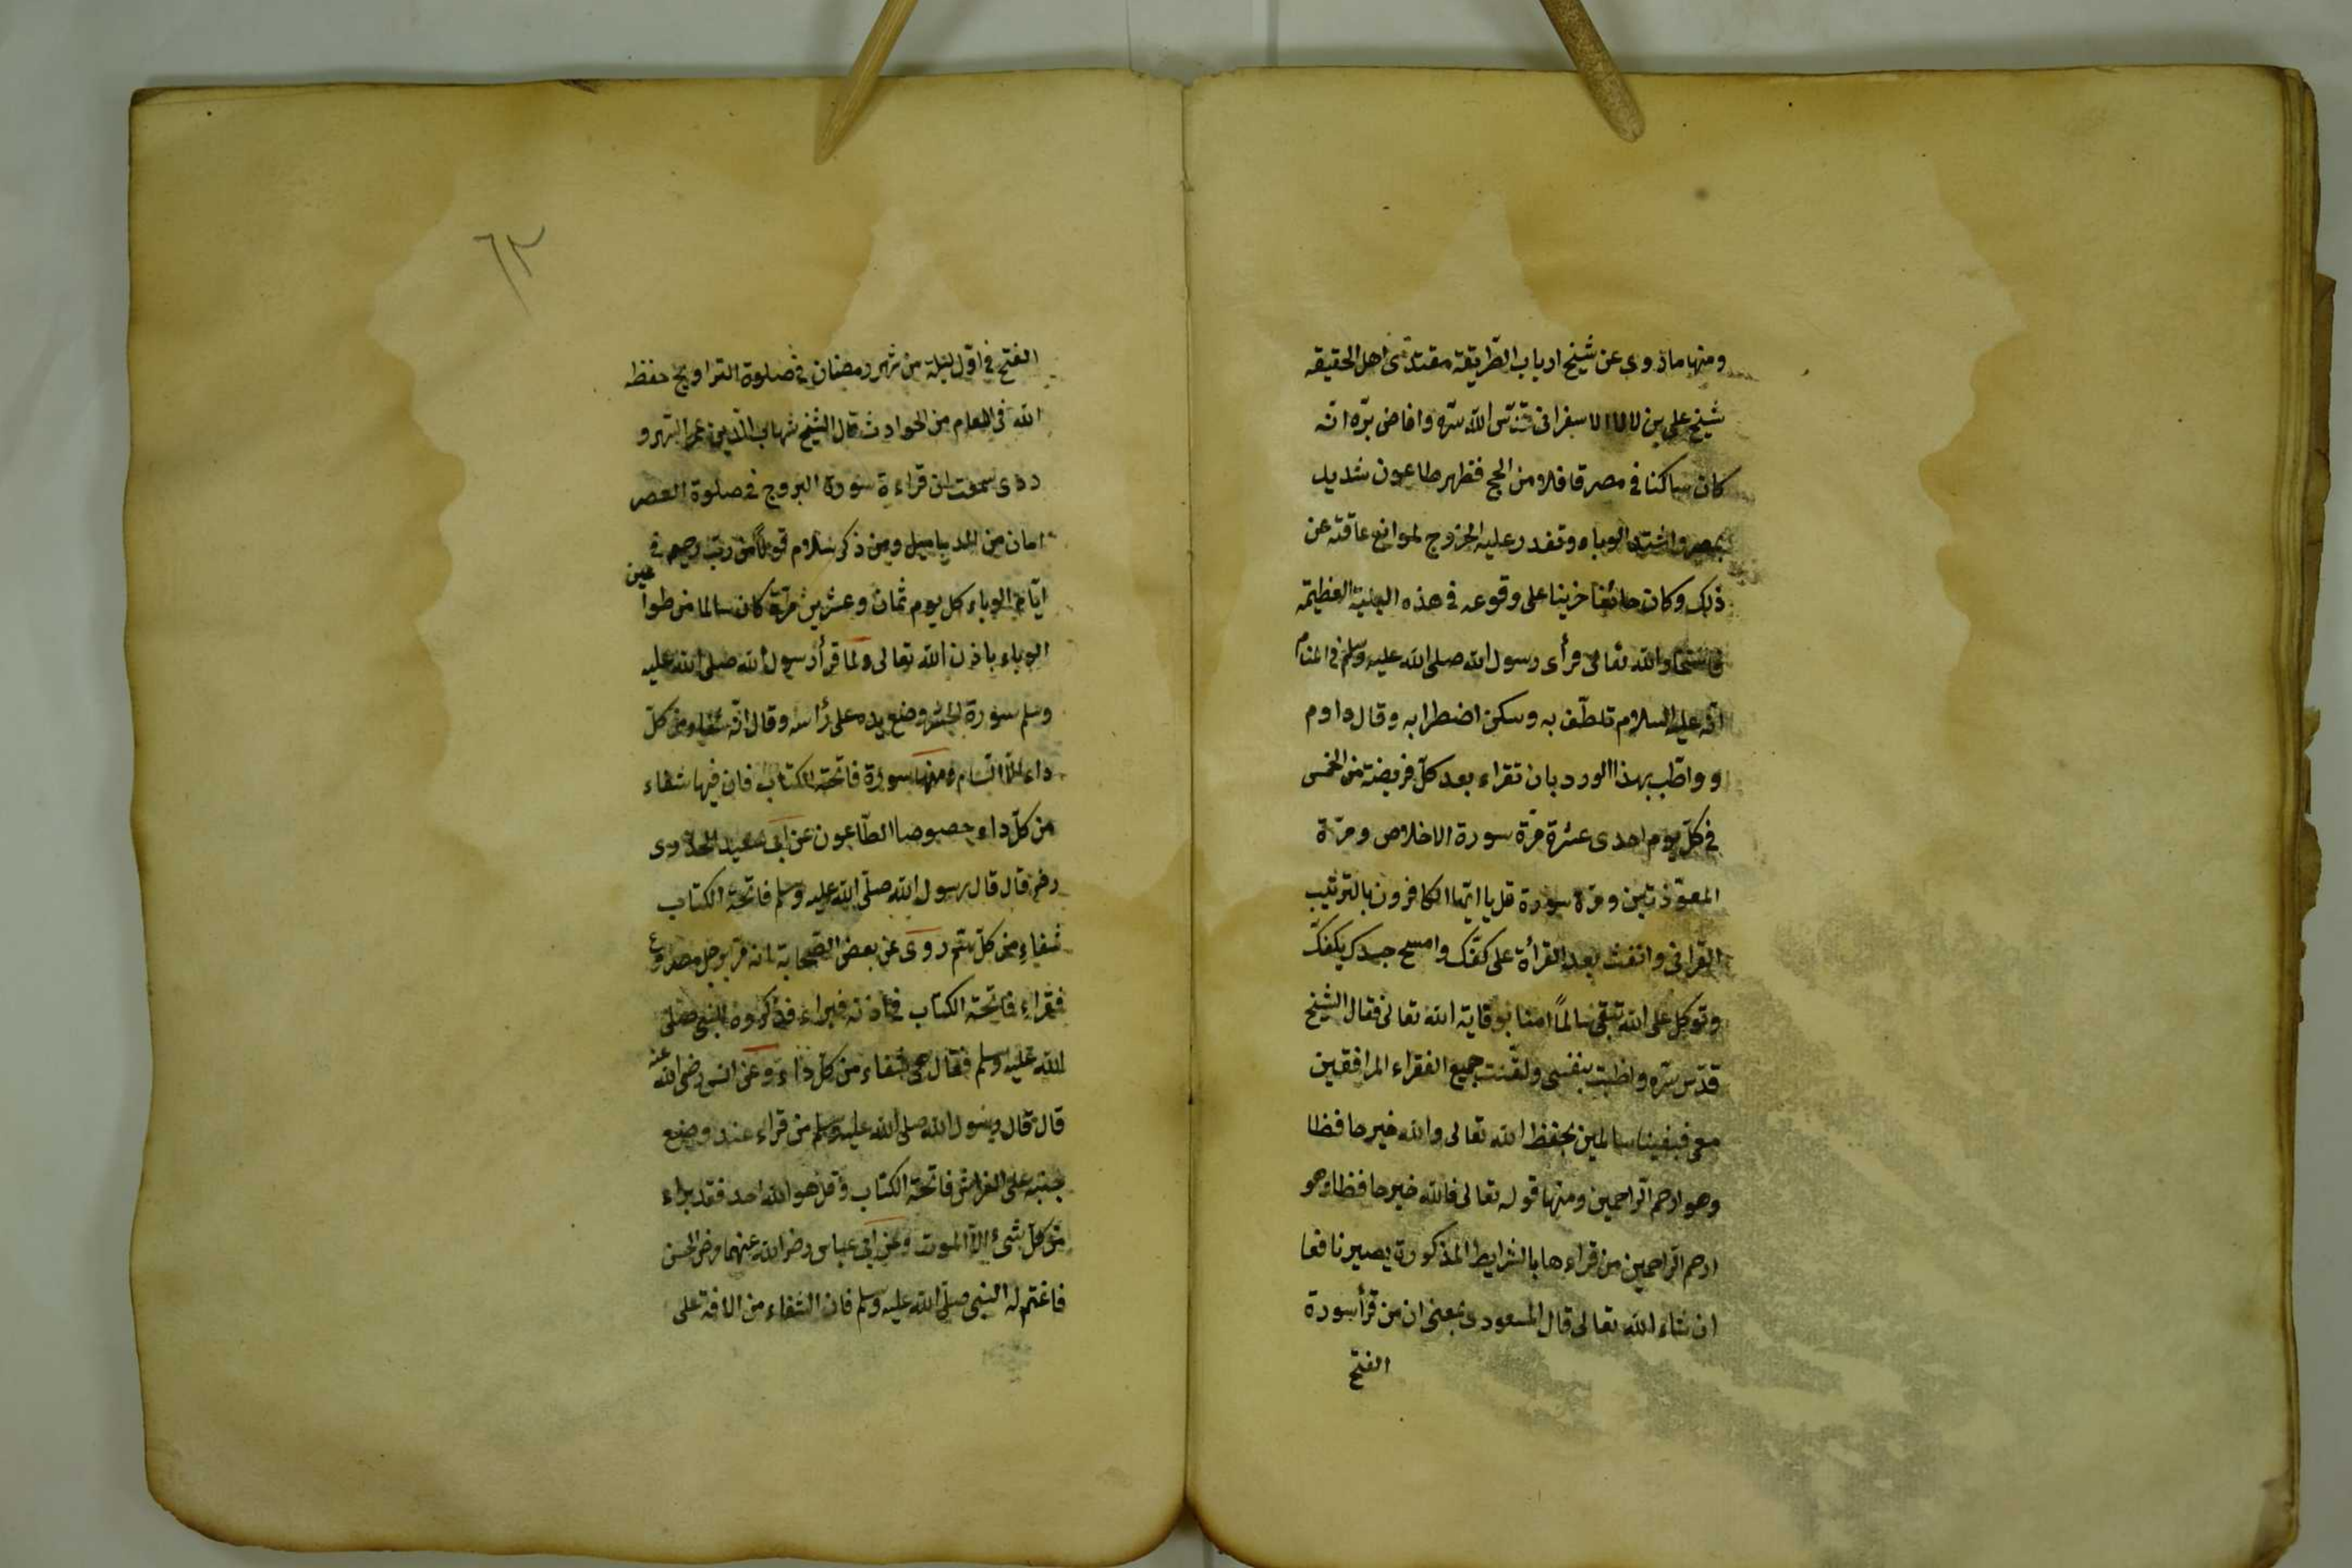 ومنها ما روى عن شيخ ارباب الطريقة مقتدى اهل الحقيقه
شيخ على بن لالا الاسفرانى قدّس الله سرّه وافاض برّه انّه
كان ساكنا فى مصر قافلا من الحج فظهر طاعون شديد
بمصر واشتد الوباء وتعذر عليه الخروج لموانع عاقته عن
ذلك وكان خائفا حزينا على وقوعه فى هذه البلية العظيمة
فاستخار الله تعالى فرأى رسول الله صلى الله عليه وسلم فى المنام
انّه عليه السلام تلطّف به وسكن اضطرابه وقال داوم
وواظب بهذا الورد بان تقراء بعد كلّ فريضة من الخمس
فى كلّ يوم احدى عشرة مرّة سورة الاخلاص ومرّة
المعوّذتين ومرّة سورة قل يا ايّها الكافرون بالترتيب
القرانى وانفث بعد القرأة على كفّك وامسح جسدك بكفك
وتوكل على الله تبقى سالماً امنا بوقاية الله تعالى فقال الشيخ
قدّس سرّه واظبت بنفسى ولقّنت جميع الفقراء المرافقين
معى فبقينا سالمين بحفظ الله تعالى والله خير حافظا
وهو ارحم الراحمين ومنها قوله تعالى فالله خير حافظا وهو
ارحم الراحمين من قراءها بالشرايط المذكورة يصير نافعا
ان شاء الله تعالى قال المسعودى بمعنى ان من قرأ سورة
الفتح
٦٣
الفتح فى اوّل ليلة من شهر رمضان فى صلوة التراويح حفظه
الله فى العام من الحوادث قال الشيخ شهاب الدّين عمر السّهرو
ردى سمعت ان قراءة سورة البروج فى صلوة العصر
امان من الدبابيل ومن ذكر سلام قولاً من ربّ رحيم فى
ايّام الوباء كل يوم ثمان وعشرين مرّة كان سالما من طواعين
الوباء باذن الله تعالى ولما قرأ رسول الله صلى الله عليه
وسلم سورة الحشر وضع يده على رأسه وقال انّه شفاء من كلّ
داء الّا السّام ومنها سورة فاتحة الكتاب فان فيها شفاء
من كلّ داء خصوصا الطّاعون عن ابى سعيد الخدرى
رضر قال قال رسول الله صلّى الله عليه وسلم فاتحة الكتاب
شفاء من كلّ سّم روى عن بعض الصّحابة انه مرّ برجل مصروع
فقراء فاتحة الكتاب فى اذنه فبراء فذكروه للنبى صلى
الله عليه وسلم فقال هى شفاء من كلّ داء وعن انس رضى الله عنه
قال قال رسول الله صلى الله عليه وسلم من قراء عند وضع
جنبه على الفراش فاتحة الكتاب وقل هو الله احد فقد براء
من كلّ شئ الّا الموت وعن ابى عباس رضر الله عنهما مرض الحسن
فاغتمّ له النبى صلّى الله عليه وسلم فان الشفاء من الافة على